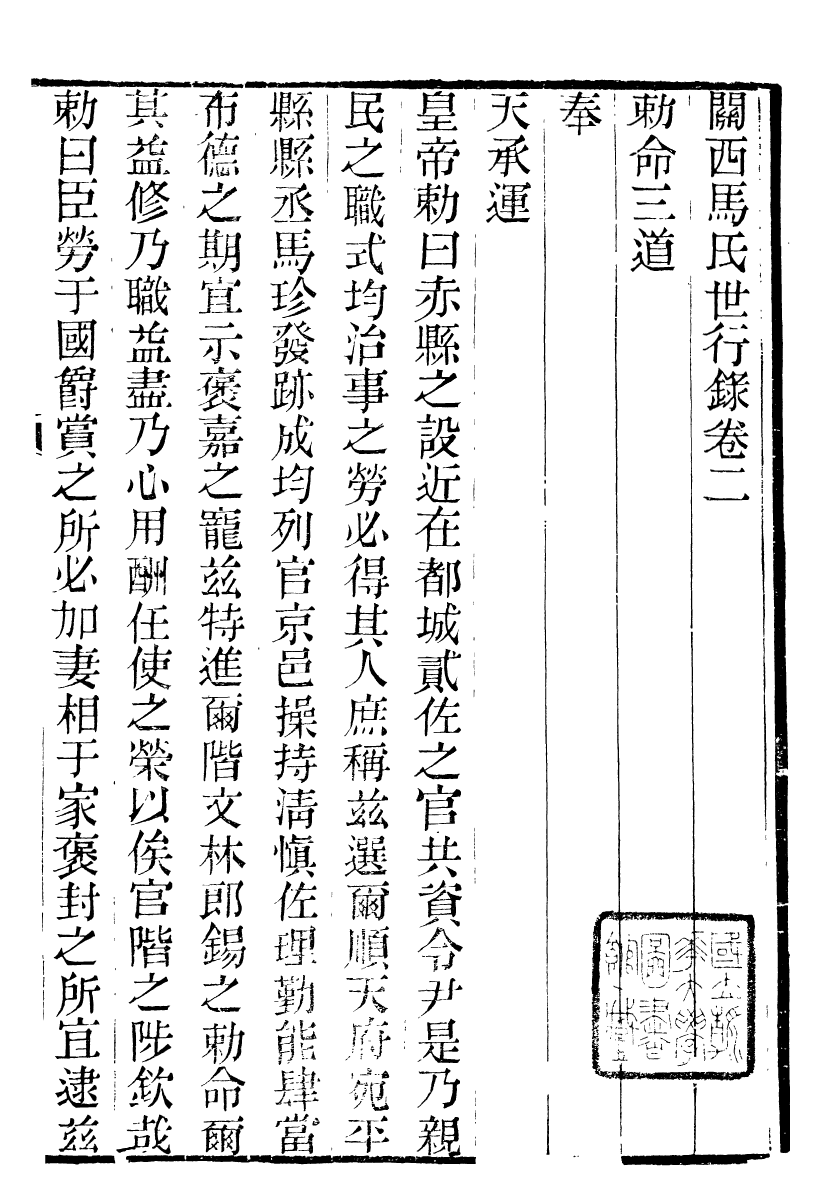 關西馬氏世行錄卷二
勅命三道
奉
天承運
皇帝勅曰赤縣之設近在都城貳佐之官共資令尹是乃親
民之職式均治事之勞必得其人庶稱茲選爾順天府宛平
縣縣丞馬珍發跡成均列官京邑操持清愼佐理勤能肆當
布德之期宜示褒嘉之寵茲特進爾階文林郎錫之勅命爾
其益修乃職益盡乃心用酬任使之榮以俟官階之陟欽哉
勅曰臣勞于國爵賞之所必加妻相于家褒封之所宜逮茲